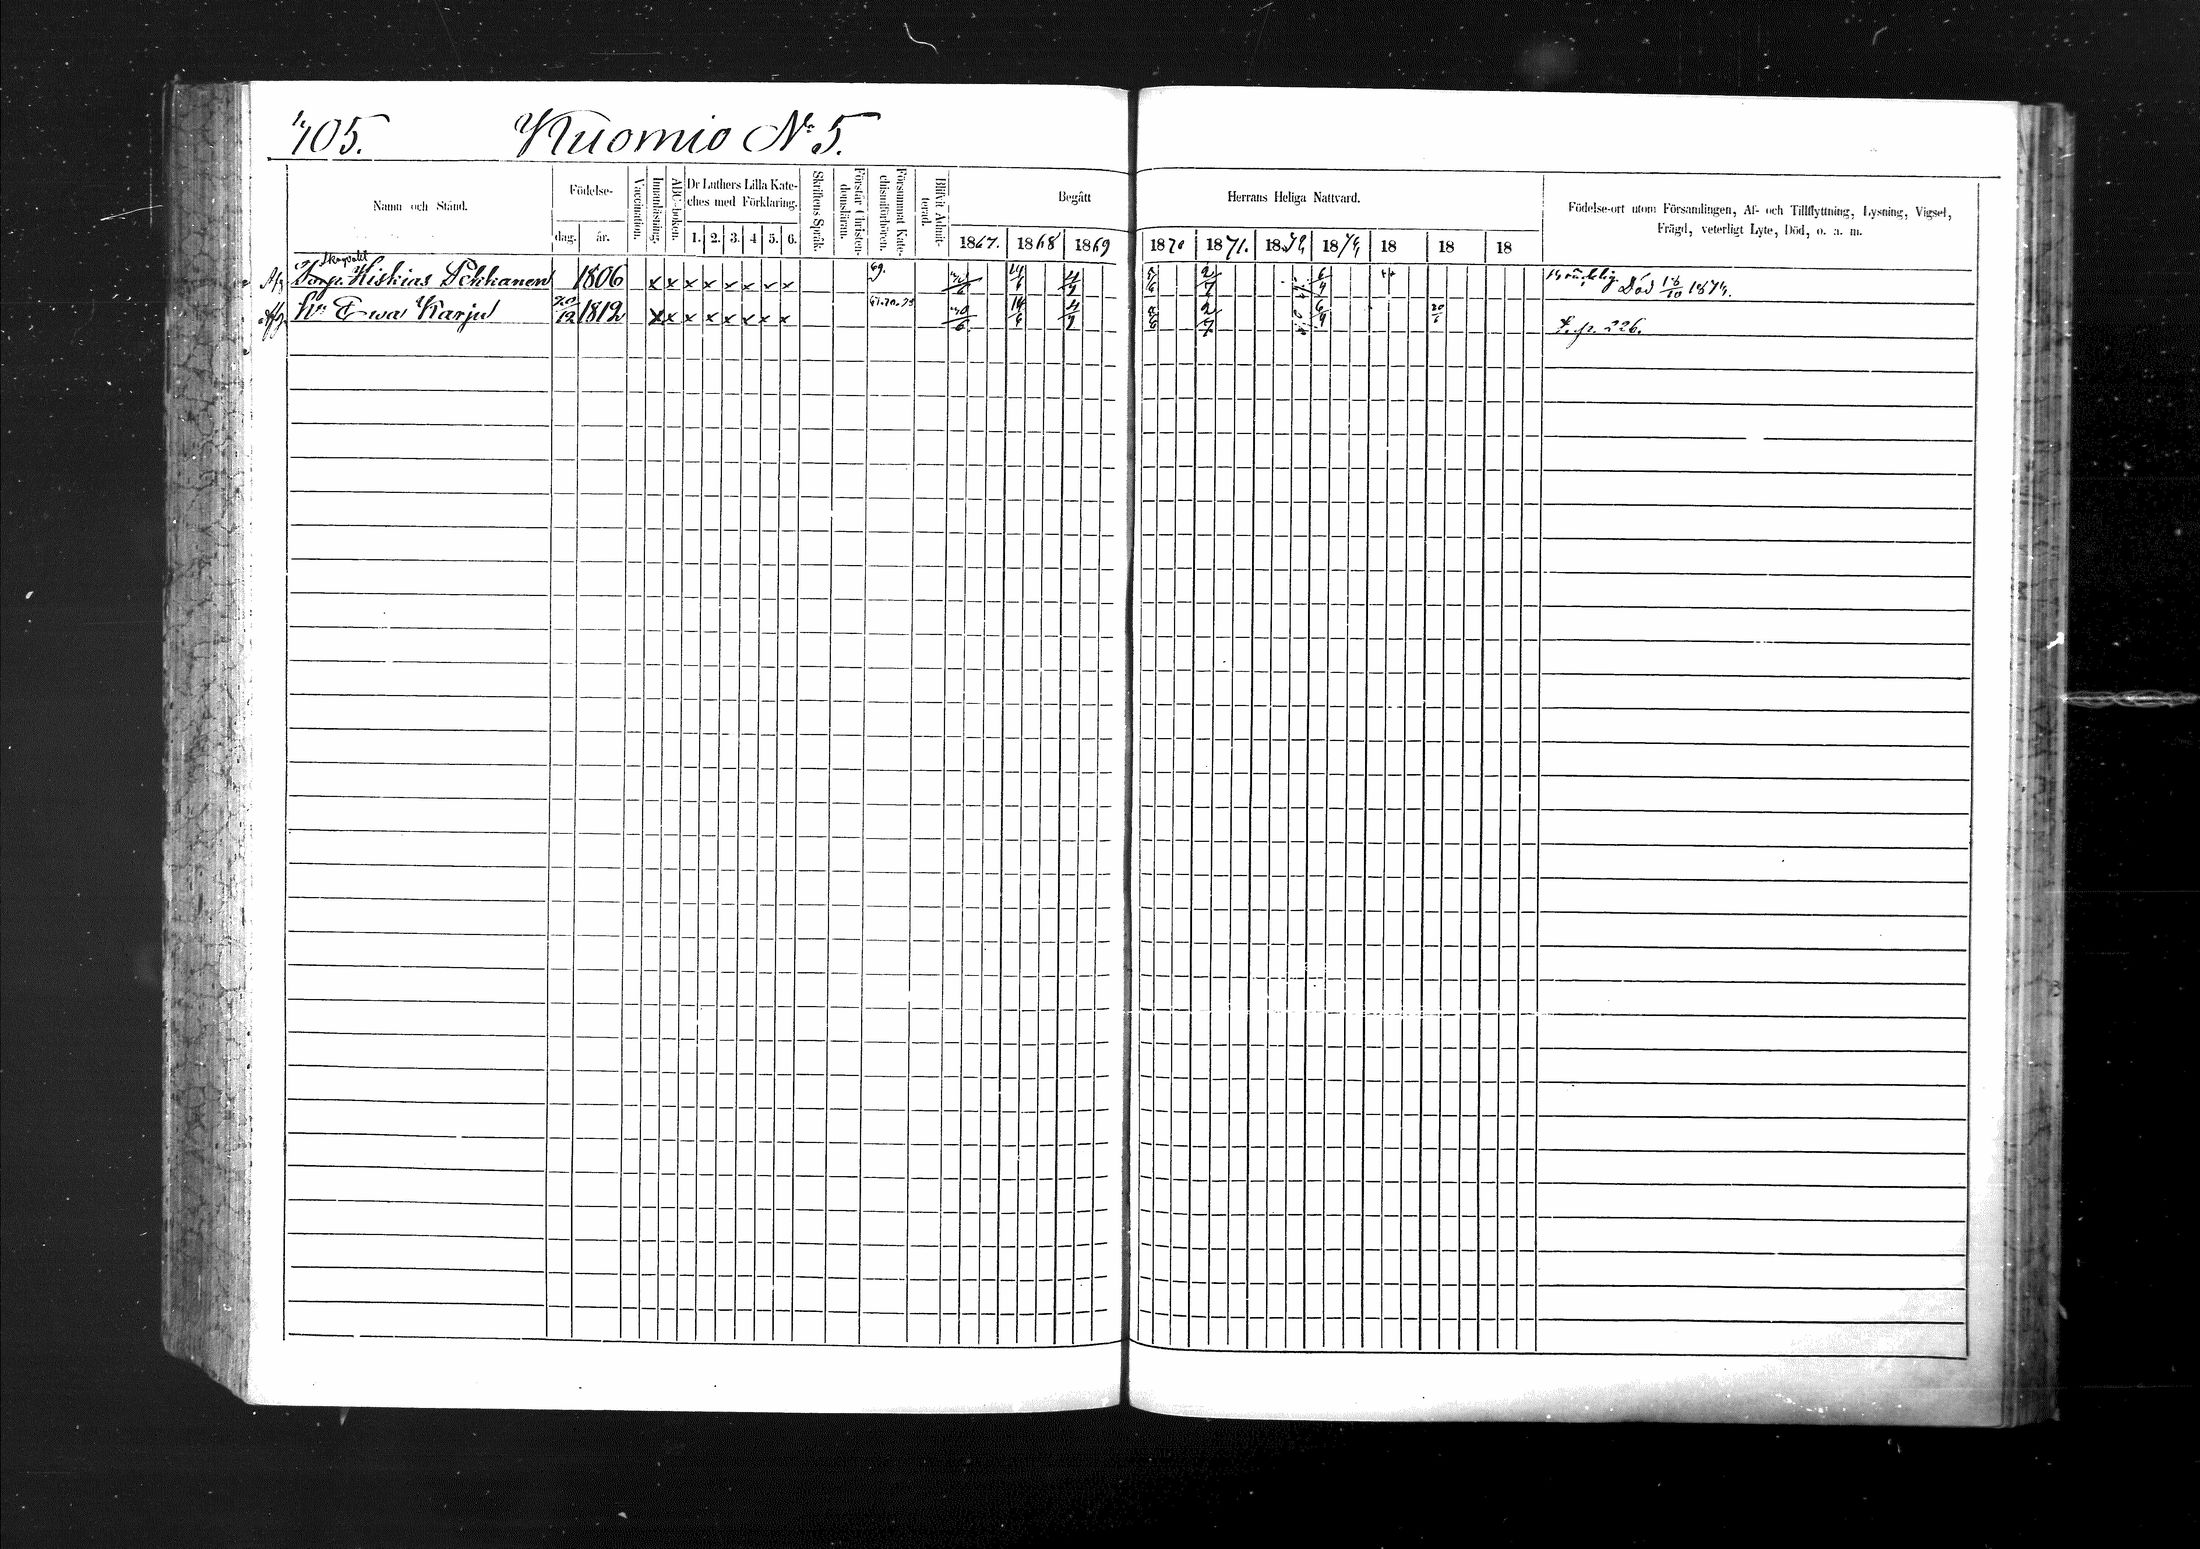 405. Kuomio No 5.
Namn och Stånd.
Födelse-
dag. år.
Vaccination.
Innanläsning.
ABC-boken.
Dr Luthers Lilla Kate-
ches med Förklaring.
1. 2. 3. 4 5. 6.
Skriftens Språk.
Förstår Christen-
domsläran.
Försummat Kate-
chismiförhören.
Blifvit Admit-
terad.
Begått Herrans Heliga Nattvard.
1867. 1868 1869 1870 1871. 1872 1874 18 18 18
Födelse-ort utom Församlingen, Af- och Tillflyttning, Lysning, Vigsel,
Frägd, veterligt Lyte, Död, o. a. m.
Torp. Hiskias Pekkanen 1806 x x x x x x x x 69. Död 1874.
Hu Ewa Karju 20/12 1812 x x x x x x x x 14/6 4/7 2/7 20/6 F. p. 226.